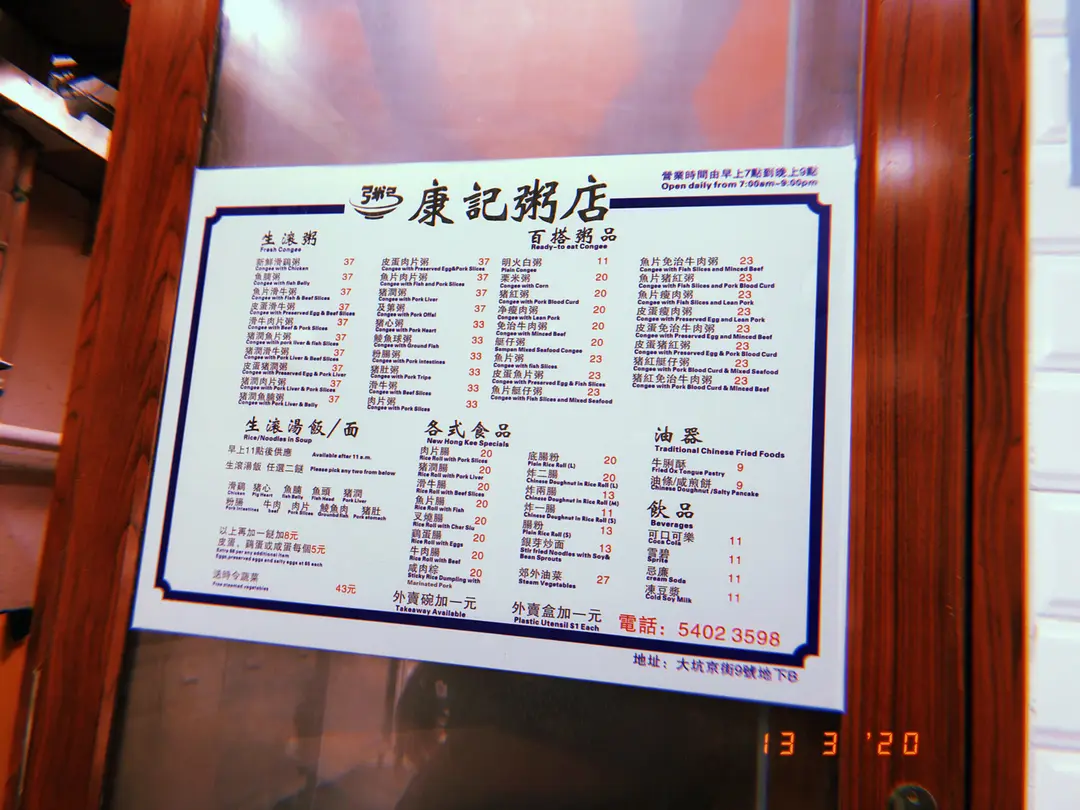 營業時間由早上7點到晚上9點
Open daily from 7:00am-9:00pm
粥 康記粥店
生滾粥
Fresh Congee
新鮮滑鷄粥 37
Congee with Chicken
魚腩粥 37
Congee with fish Belly
魚片滑牛粥 37
Congee with Fish & Beef Slices
皮蛋滑牛粥 37
Congee with Preserved Egg & Beef Slices
滑牛肉片粥 37
Congee with Beef & Pork Slices
猪潤魚片粥 37
Congee with pork liver & fish Slices
猪潤滑牛粥 37
Congee with Pork Liver & Beef Slices
皮蛋猪潤粥 37
Congee with Preserved Egg & Pork Liver
猪潤肉片粥 37
Congee with Pork Liver & Pork Slices
猪潤魚腩粥 37
Congee with Pork Liver & Belly
皮蛋肉片粥 37
Congee with Preserved Egg&Pork Slices
魚片肉片粥 37
Congee with Fish and Pork Slices
猪潤粥 37
Congee with Pork Liver
及第粥 37
Congee with Pork Offal
猪心粥 33
Congee with Pork Heart
鯪魚球粥 33
Congee with Ground Fish
粉腸粥 33
Congee with Pork intestines
猪肚粥 33
Congee with Pork Tripe
滑牛粥 33
Congee with Beef Slices
肉片粥 33
Congee with Pork Slices
百搭粥品
Ready-to eat Congee
明火白粥 11
Plain Congee
粟米粥 20
Congee with Corn
猪紅粥 20
Congee with Pork Blood Curd
净瘦肉粥 20
Congee with Lean Pork
免治牛肉粥 20
Congee with Minced Beef
艇仔粥 20
Sampan Mixed Seafood Congee
魚片粥 23
Congee with fish Slices
皮蛋魚片粥 23
Congee with Preserved Egg & Fish Slices
魚片艇仔粥 23
Congee with Fish Slices and Mixed Seafood
魚片免治牛肉粥 23
Congee with Fish Slices and Minced Beef
魚片猪紅粥 23
Congee with Fish Slices and Pork Blood Curd
魚片瘦肉粥 23
Congee with Fish Slices and Lean Pork
皮蛋瘦肉粥 23
Congee with Preserved Egg and Lean Pork
皮蛋免治牛肉粥 23
Congee with Preserved Egg and Minced Beef
皮蛋猪紅粥 23
Congee with Preserved Egg & Pork Blood Curd
猪紅艇仔粥 23
Congee with Pork Blood Curd & Mixed Seafood
猪紅免治牛肉粥 23
Congee with Pork Blood Curd & Minced Beef
生滾湯飯/面
Rice/Noodles in Soup
早上11點後供應 Available after 11 a.m.
生滾湯飯 任選二餸 Please pick any two from below
滑鷄 猪心 魚腩 魚頭 猪潤
Chicken Pig Heart fish Belly Fish Head Pork Liver
粉腸 牛肉 肉片 鯪魚肉 猪肚
Pork Intestines Beef Pork Slices Groundfish Pork stomach
以上再加一餸加8元
皮蛋、鷄蛋或咸蛋每個5元
Extra $8 per any additional item
Eggs,preserved eggs and salty eggs at $5 each
送時令蔬菜 43元
Free steamed vegetables
各式食品
New Hong Kee Specials
肉片腸 20
Rice Roll with Pork Slices
猪潤腸 20
Rice Roll with Pork Liver
滑牛腸 20
Rice Roll with Beef Slices
魚片腸 20
Rice Roll with Fish
叉燒腸 20
Rice Roll with Char Siu
鷄蛋腸 20
Rice Roll with Eggs
牛肉腸 20
Rice Roll with Beef
咸肉粽 20
Sticky Rice Dumpling with
Marinated Pork
外賣碗加一元
Takeaway Available
底腸粉 20
Plain Rice Roll (L)
炸二腸 20
Chinese Doughnut in Rice Roll (L)
炸兩腸 13
Chinese Doughnut in Rice Roll (M)
炸一腸 11
Chinese Doughnut in Rice Roll (S)
腸粉 13
Plain Rice Roll (S)
銀芽炒面 13
Stir fried Noodles with Soy&
Bean Sprouts
郊外油菜 27
Steam Vegetables
外賣盒加一元
Plastic Utensil $1 Each
油器
Traditional Chinese Fried Foods
牛脷酥 9
Fried Ox Tongue Pastry
油條/咸煎餅 9
Chinese Doughnut /Salty Pancake
飲品
Beverages
可口可樂 11
Coca Cola
雪碧 11
Sprite
忌廉 11
cream Soda
凍豆漿 11
Cold Soy Milk
電話：5402 3598
地址：大坑京街9號地下B
13 3 '20